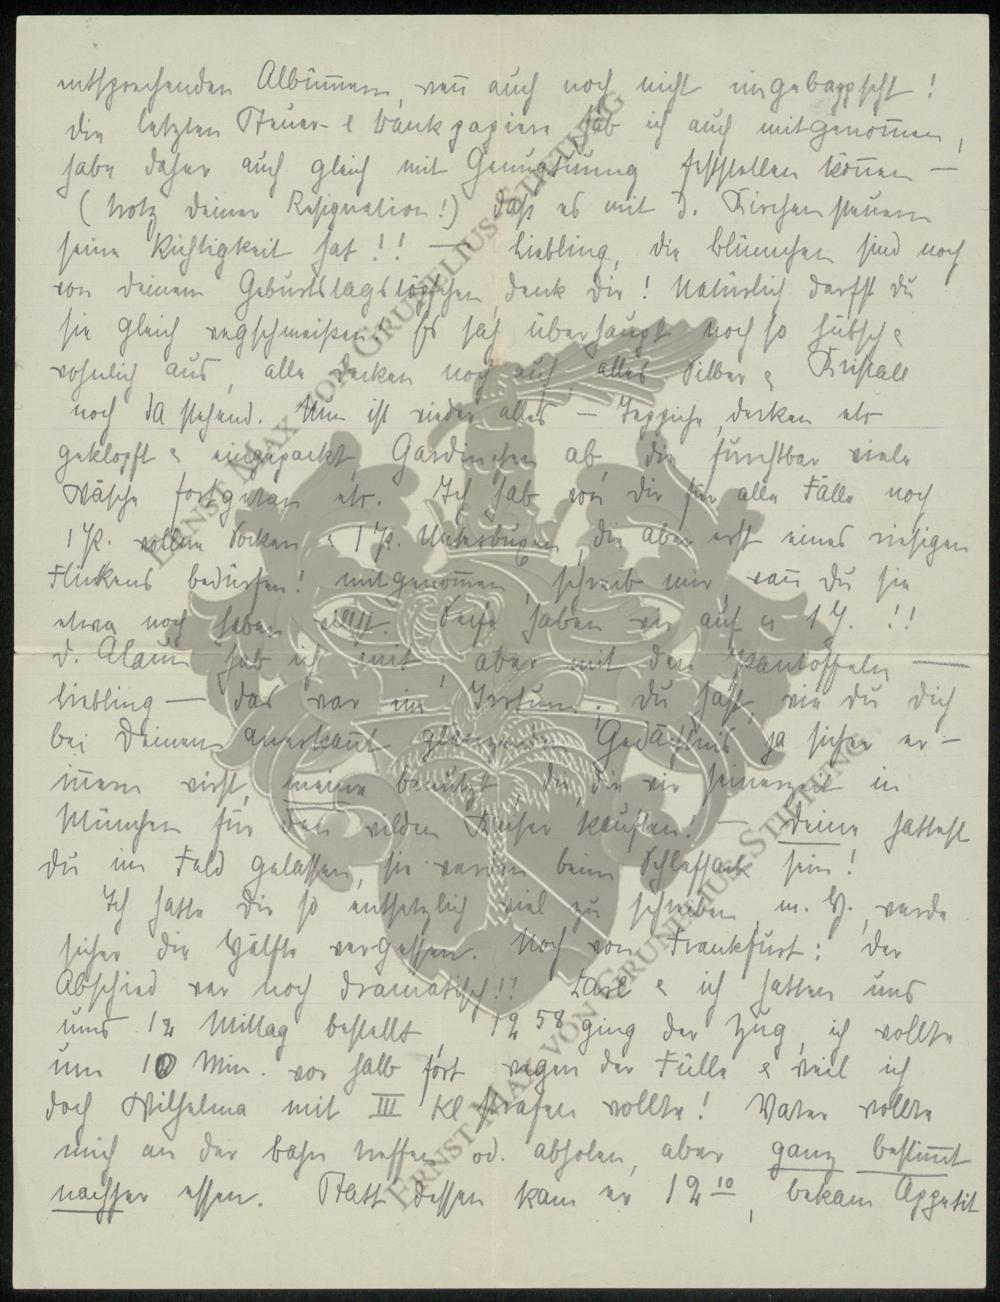 entsprechenden Albümmern, wenn auch noch nicht eingebappscht!
die letzten Steuer- & Bankpapiere hab ich auch mitgenom̅en,
habe daher auch gleich mit Genugtuung feststellen kön̅en —
(trotz deiner Resignation!) daß es mit d. Kirchensteuern
seine Richtigkeit hat!! — Liebling, die Blümchen sind noch
von deinem Geburtstagstöpfchen, denk dir! Natürlich darfst du
sie gleich wegschmeißen. Es sah überhaupt noch so hübsch &
wohnlich aus, alle Decken noch auf, alles Silber & Kristall
noch dastehend. Nun ist wieder alles — Teppiche, Decken etc
geklopft & eingepackt, Gardinchen ab, die furchtbar viele
Wäsche fortgetan etc. Ich hab von dir für alle Fälle noch
1 P. wollene Socken & 1 P. Unterbuxen, die aber erst eines riesigen
Flickens bedürfen! mitgenom̅en, schreib mir, wan̅ du sie
etwa noch haben willst. Seife haben wir auch
d. Alaun hab ich mit, aber mit den Pantoffeln —
Liebling — das war ein Irrtum. Du hast, wie du dich
bei Deinem anerkan̅t glänzenden Gedächtnis ja sicher er-
in̅ern wirst, meine benutzt, die, die wir seinerzeit in
München für den wilden Kaiser kauften! — Deine hattest
du im Feld gelassen, sie werden beim Schlafsack sein!
Ich hatte Dir so entsetzlich viel zu schreiben, m. H., werde
sicher die Hälfte vergessen. Noch von Frankfurt: Der
Abschied war noch dramatisch!! Carl & ich hatten uns
ums 12 Mittag bestellt, 12 58 ging der Zug, ich wollte
um 10 Min. vor halb fort wegen der Fülle & weil ich
doch Wilhelma mit III Kl strafen wollte! Vater wollte
mich an der Bahn treffen od. abholen, aber ganz bestim̅t
nachher essen. Statt dessen kam er 12 10, bekam Appetit
ERNST MAX VON GRUNELIUS-STIFTUNG
ERNST MAX VON GRUNELIUS-STIFTUNG